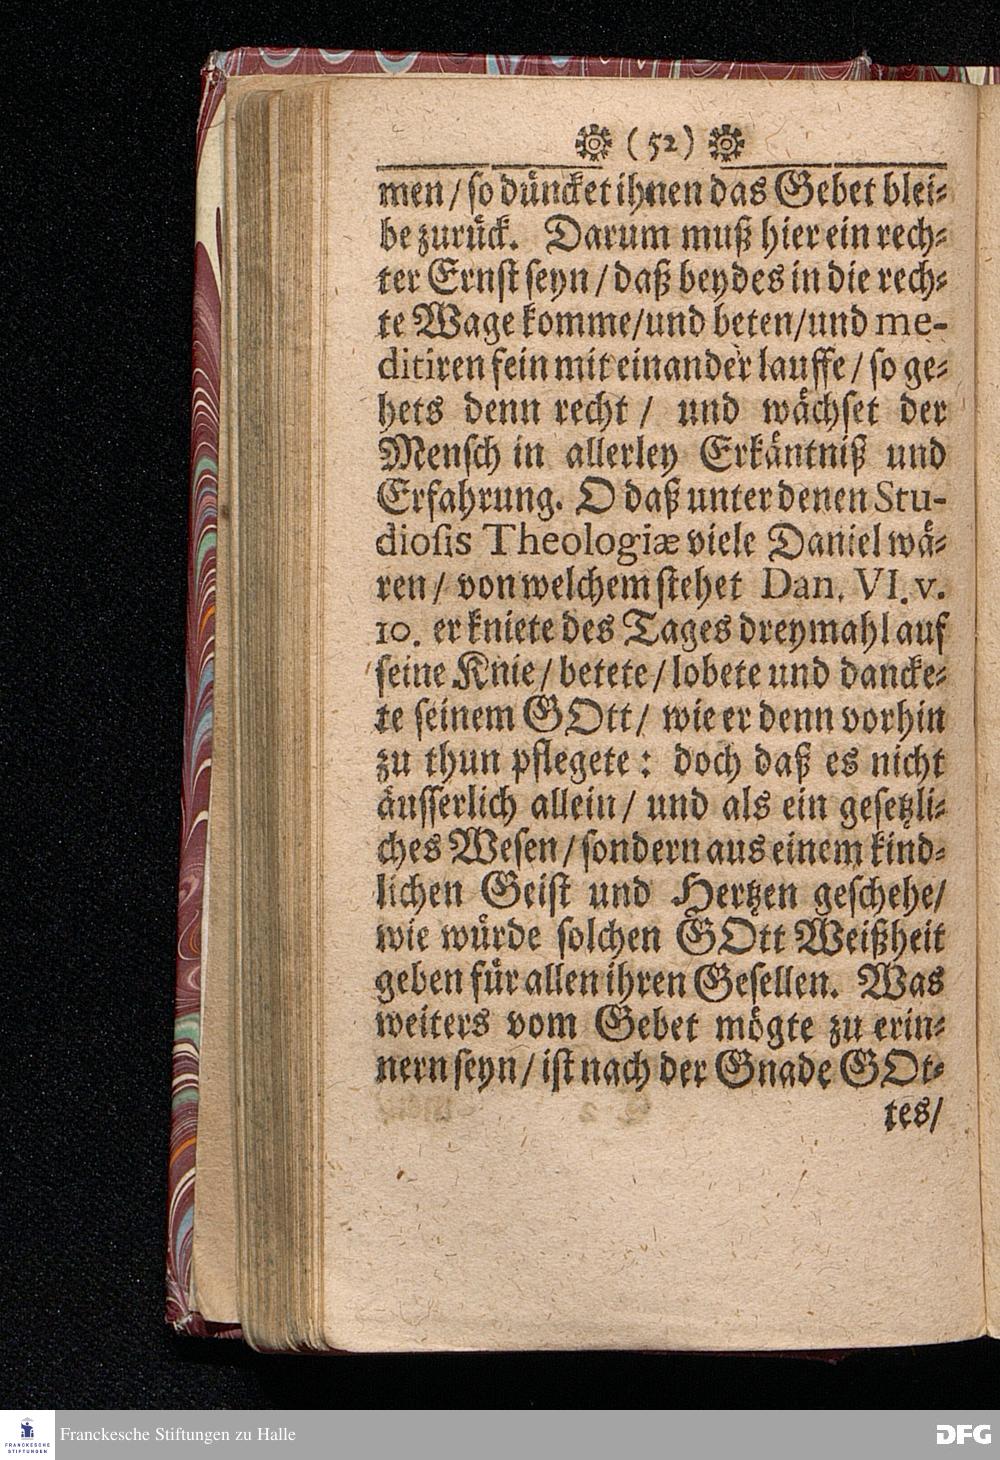 (52)
men / so düncket ihnen das Gebet blei-
be zurück. Darum muß hier ein rech-
ter Ernst seyn / daß beydes in die rech-
te Wage komme/und beten/und me-
ditiren fein mit einander lauffe / so ge-
hets denn recht / und wächset der
Mensch in allerley Erkäntniß und
Erfahrung. O daß unter denen Stu-
diosis Theologiæ viele Daniel wä-
ren / von welchem stehet Dan. VI. v.
10. er kniete des Tages dreymahl auf
seine Knie / betete / lobete und dancke-
te seinem GOtt / wie er denn vorhin
zu thun pflegete: doch daß es nicht
äusserlich allein / und als ein gesetzli-
ches Wesen / sondern aus einem kind-
lichen Geist und Hertzen geschehe/
wie würde solchen GOtt Weißheit
geben für allen ihren Gesellen. Was
weiters vom Gebet mögte zu erin-
nern seyn / ist nach der Gnade GOt-
tes/
FRANCKESCHE
STIFTUNGEN
Franckesche Stiftungen zu Halle
DFG